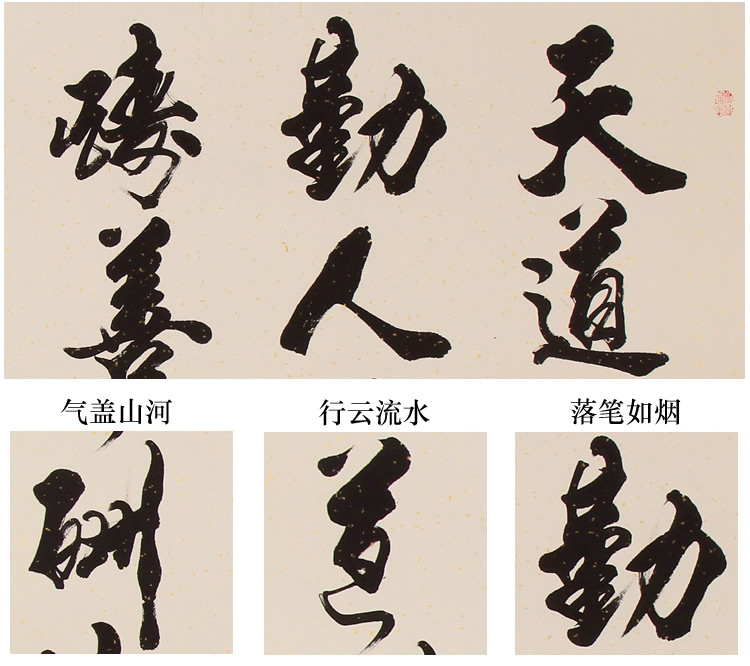 天道
勤人
善
气盖山河
行云流水
落笔如烟
酬
道
勤